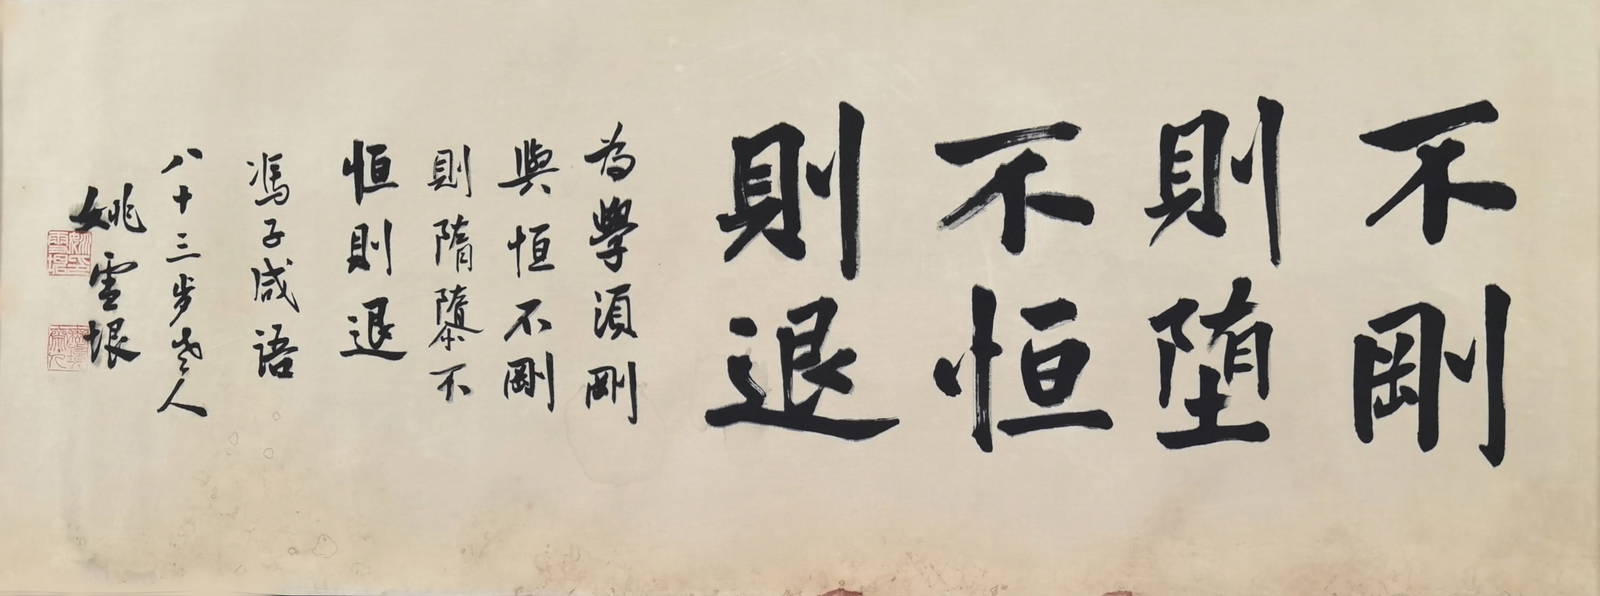 不剛
則堕
不恒
則退
為學須剛
與恒不剛
則隋隳不
恒則退
馮子咸语
八十三岁老人
姚雪垠